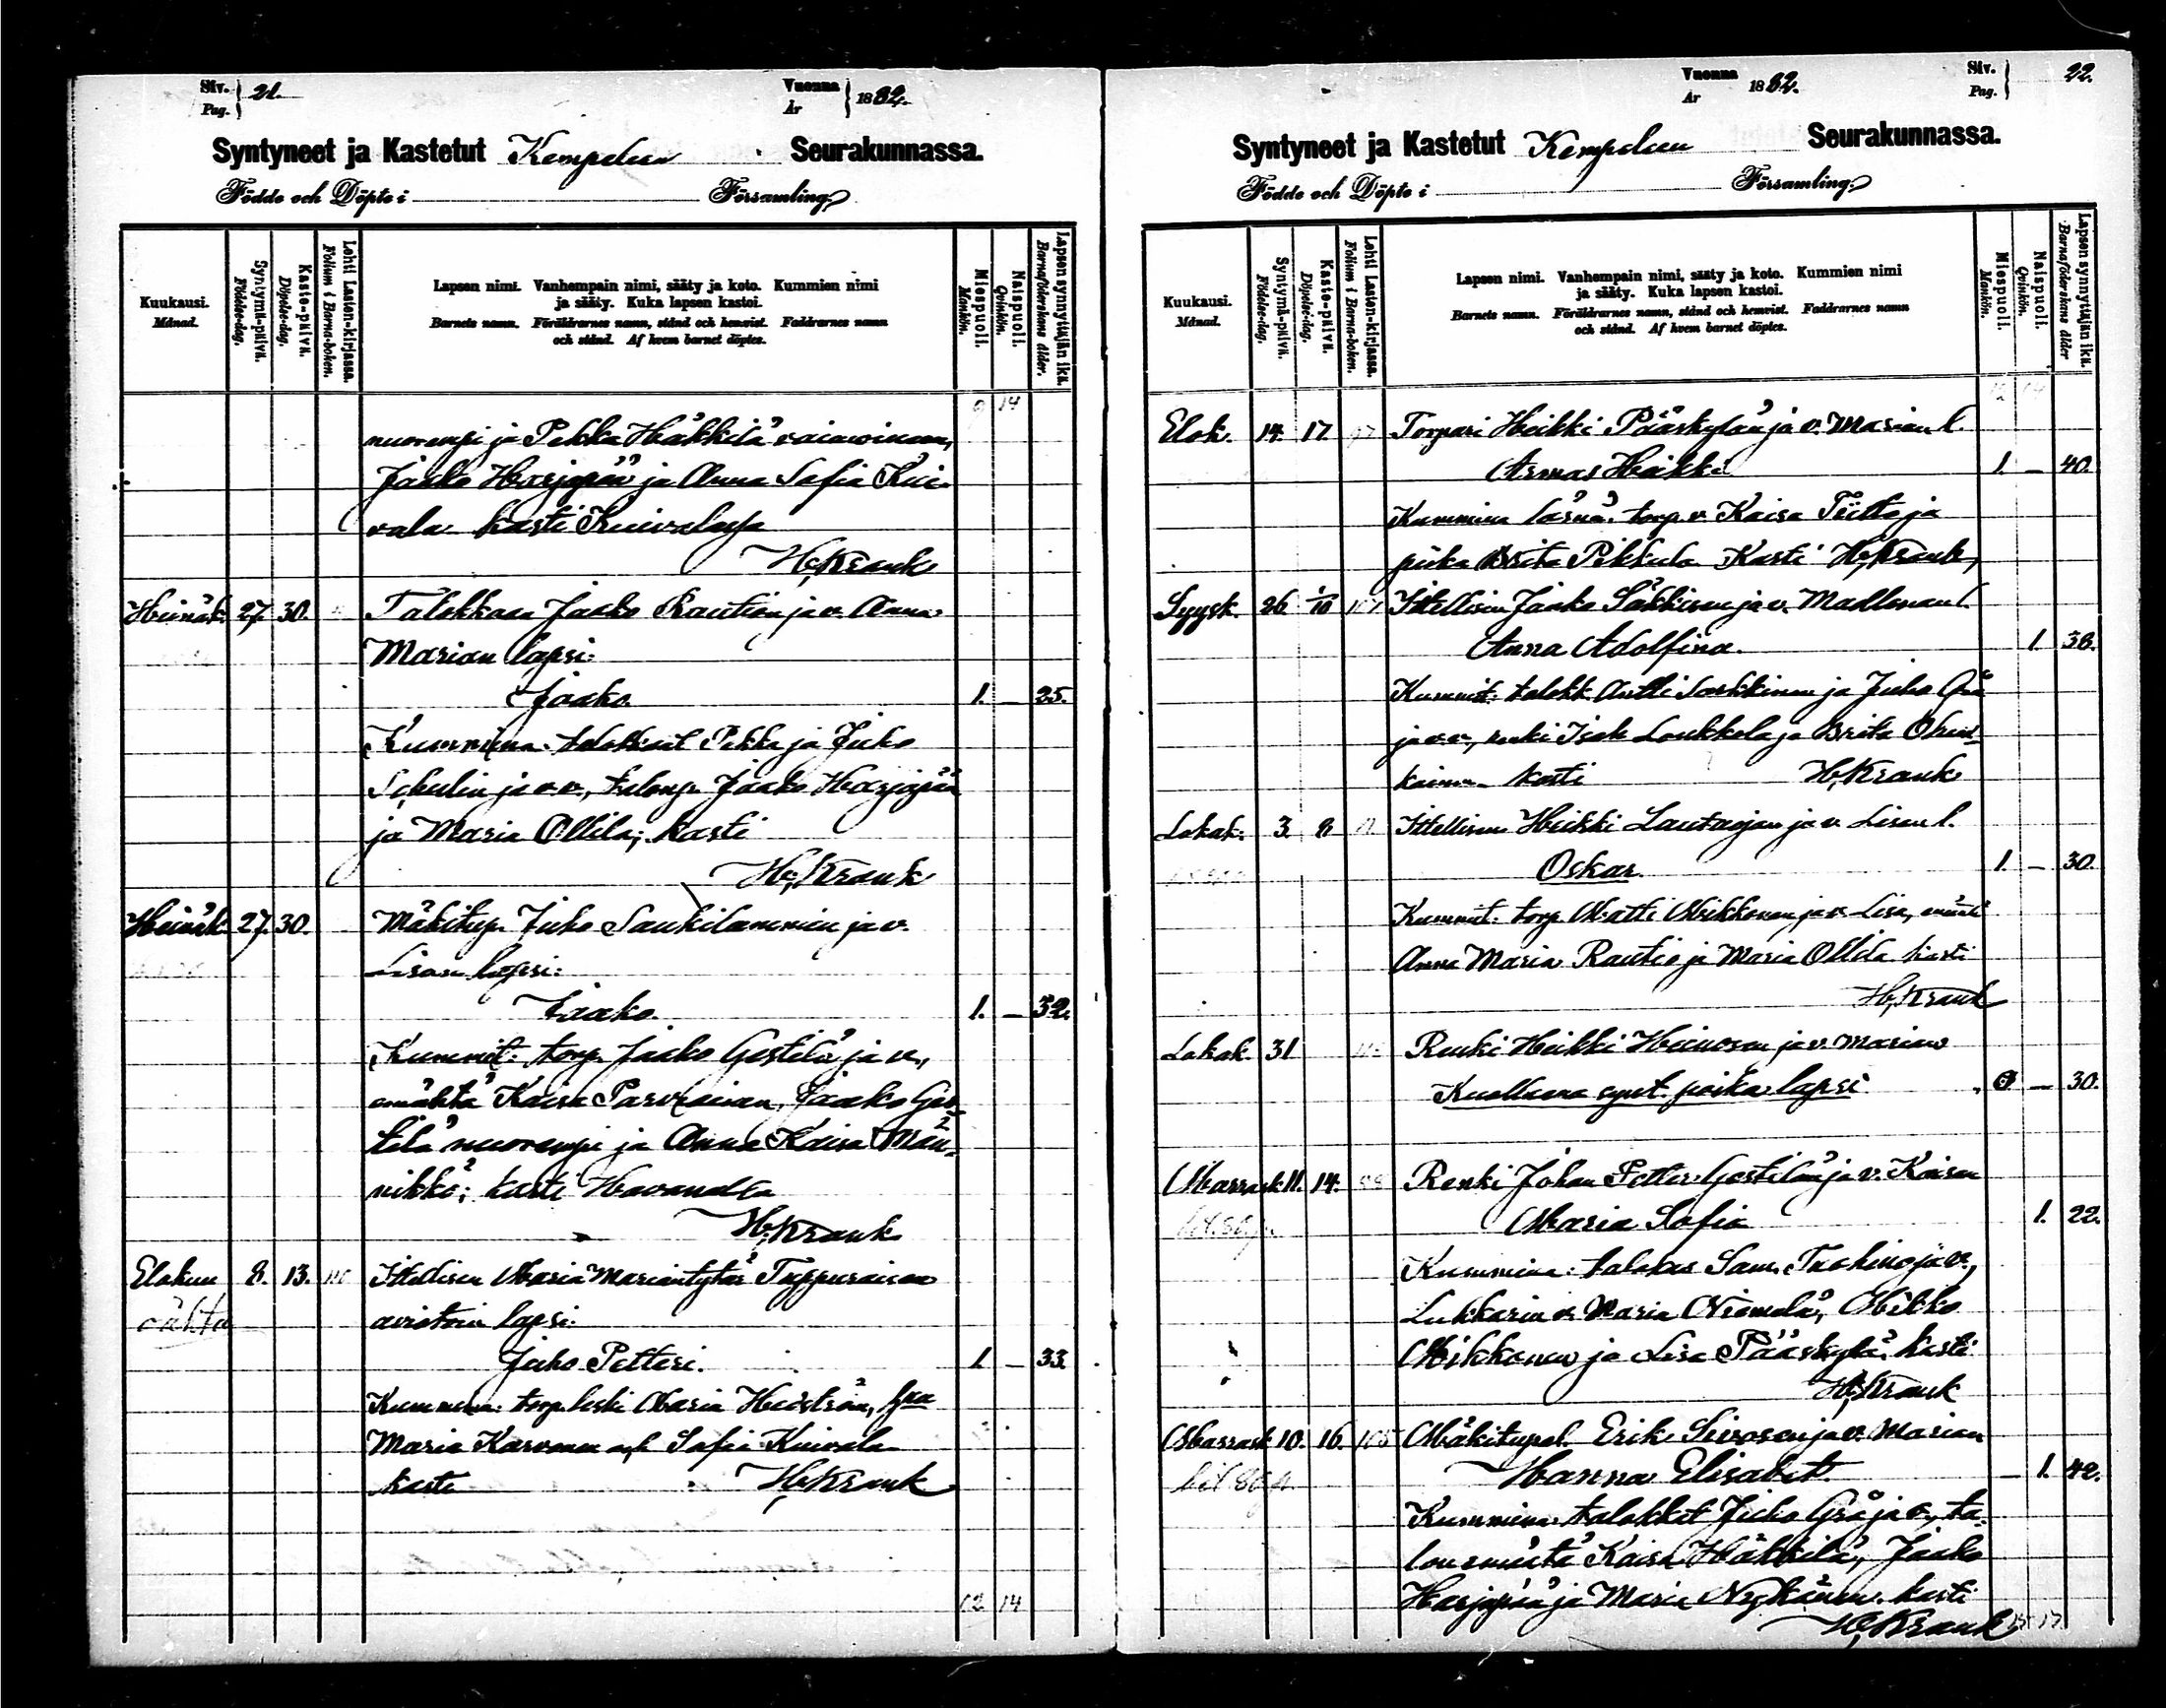 Siv. Pag. } 21.
Vuonna År } 1882.
Syntyneet ja Kastetut Kempeleen Seurakunnassa.
Födde och Döpte i Församling.
Kuukausi. Månad.
Syntymä-päivä. Födelse-dag.
Kaste-päivä. Döpelse-dag.
Lehti Lasten-kirjassa. Folium i Barna-boken.
Lapsen nimi. Vanhempain nimi, sääty ja koto. Kummien nimi
ja sääty. Kuka lapsen kastoi.
Barnets namn. Föräldrarnes namn, stånd och hemvist. Faddrarnes namn
och stånd. Af hvem barnet döptes.
Miespuoli. Mankön.
Naispuoli. Qvinkön.
Lapsen synnyttäjän ikä. Barnaföderskans ålder.
9 14
nuorempi ja Pekka Häkkilä
Jaako Harjapää ja Anna Sofia Kui-
vala kasti Kuivalassa
H. Krank
Heinäk. 27. 30. Talokkaan Jaako Raution ja v. Anna
Marian lapsi:
Jaako. 1. — 25.
Kummina. talokkaat Pekka ja Juho
Schulin ja v.v., talonp. Jaako Harjapää
ja Maria Ollila; kasti
H. Krank
Heinäk. 27. 30. Mäkitup. Juho Saukilammin ja v.
Lisan lapsi:
Jaako. 1. — 32.
Kummit: torp. Jaako Gestilä ja v.,
emäntä Kaisa Parviainen, Jaako Ges-
tilä nuorempi ja Anna Kaisa Män-
nikkö; kasti
H. Krank
Elokuu 8. 13. Itellisen Maria Mariantytär Tuppuraisen
aviotoin lapsi:
Juho Petteri. 1. — 33.
Kummina: torp. leski Maria Hedström,
Maria Karvonen och Sofia Kuivala
kasti H. Krank
12 14
Vuonna År 1882.
Siv. Pag. } 22.
Syntyneet ja Kastetut Kempeleen Seurakunnassa.
Födde och Döpte i Församling.
Kuukausi. Månad.
Syntymä-päivä. Födelse-dag.
Kaste-päivä. Döpelse-dag.
Lehti Lasten-kirjassa. Folium i Barna-boken.
Lapsen nimi. Vanhempain nimi, sääty ja koto. Kummien nimi
ja sääty. Kuka lapsen kastoi.
Barnets namn. Föräldrarnes namn, stånd och hemvist. Faddrarnes namn
och stånd. Af hvem barnet döptes.
Miespuoli. Mankön.
Naispuoli. Qvinkön.
Lapsen synnyttäjän ikä. Barnaföderskans ålder
12 14
Elok. 14. 17. Torpari Heikki Pääskylän ja v. Marian l.
Armas Heikki 1. — 40.
Kummina läsnä: torp. v. Kaisa Tiitto ja
piika Brita Pikkula Kasti H. Krank,
Syysk. 26. 1/10 Itellisen Jaako Säkkisen ja v. Madlenan l.
Anna Adolfina. 1. 38.
Kummit: talokk. Antti Sarkkinen ja Juho Grå
ja v.v., renki Isak Loukkola ja Brita
kasti H. Krank
Lokak. 3. 8. Itellisen Heikki Lautaojan ja v. Lisan l.
Oskar. 1. — 30.
Kummit: torp. Matti Mikkonen ja v. Lisa,
Anna Maria Rautio ja Maria Ollila kasti
H. Krank
Lokak. 31 Renki Heikki Heinosen ja v. Marian
Kuolleena synt. poika lapsi — 30.
Marrask. 11. 14. Renki Johan Petter Gestilän ja v. Kaisan
Maria Sofia 1. 22.
Kummina: talokas Sam. Tuohino ja v.,
Lukkarin v. Maria Niemelä, Mikko
Mikkonen ja Lisa Pääskylä. kasti
H. Krank
Marrask. 10. 16. 105 Mäkitupal. Erik Sivosen ja v. Marian
Hanna Elisabet — 1. 42.
Kummina: talokkat Juho Grå ja v., ta-
lon emäntä Kaisa Häkkilä, Jaako
Harjapää ja Maria Nykänen. kasti
H. Krank